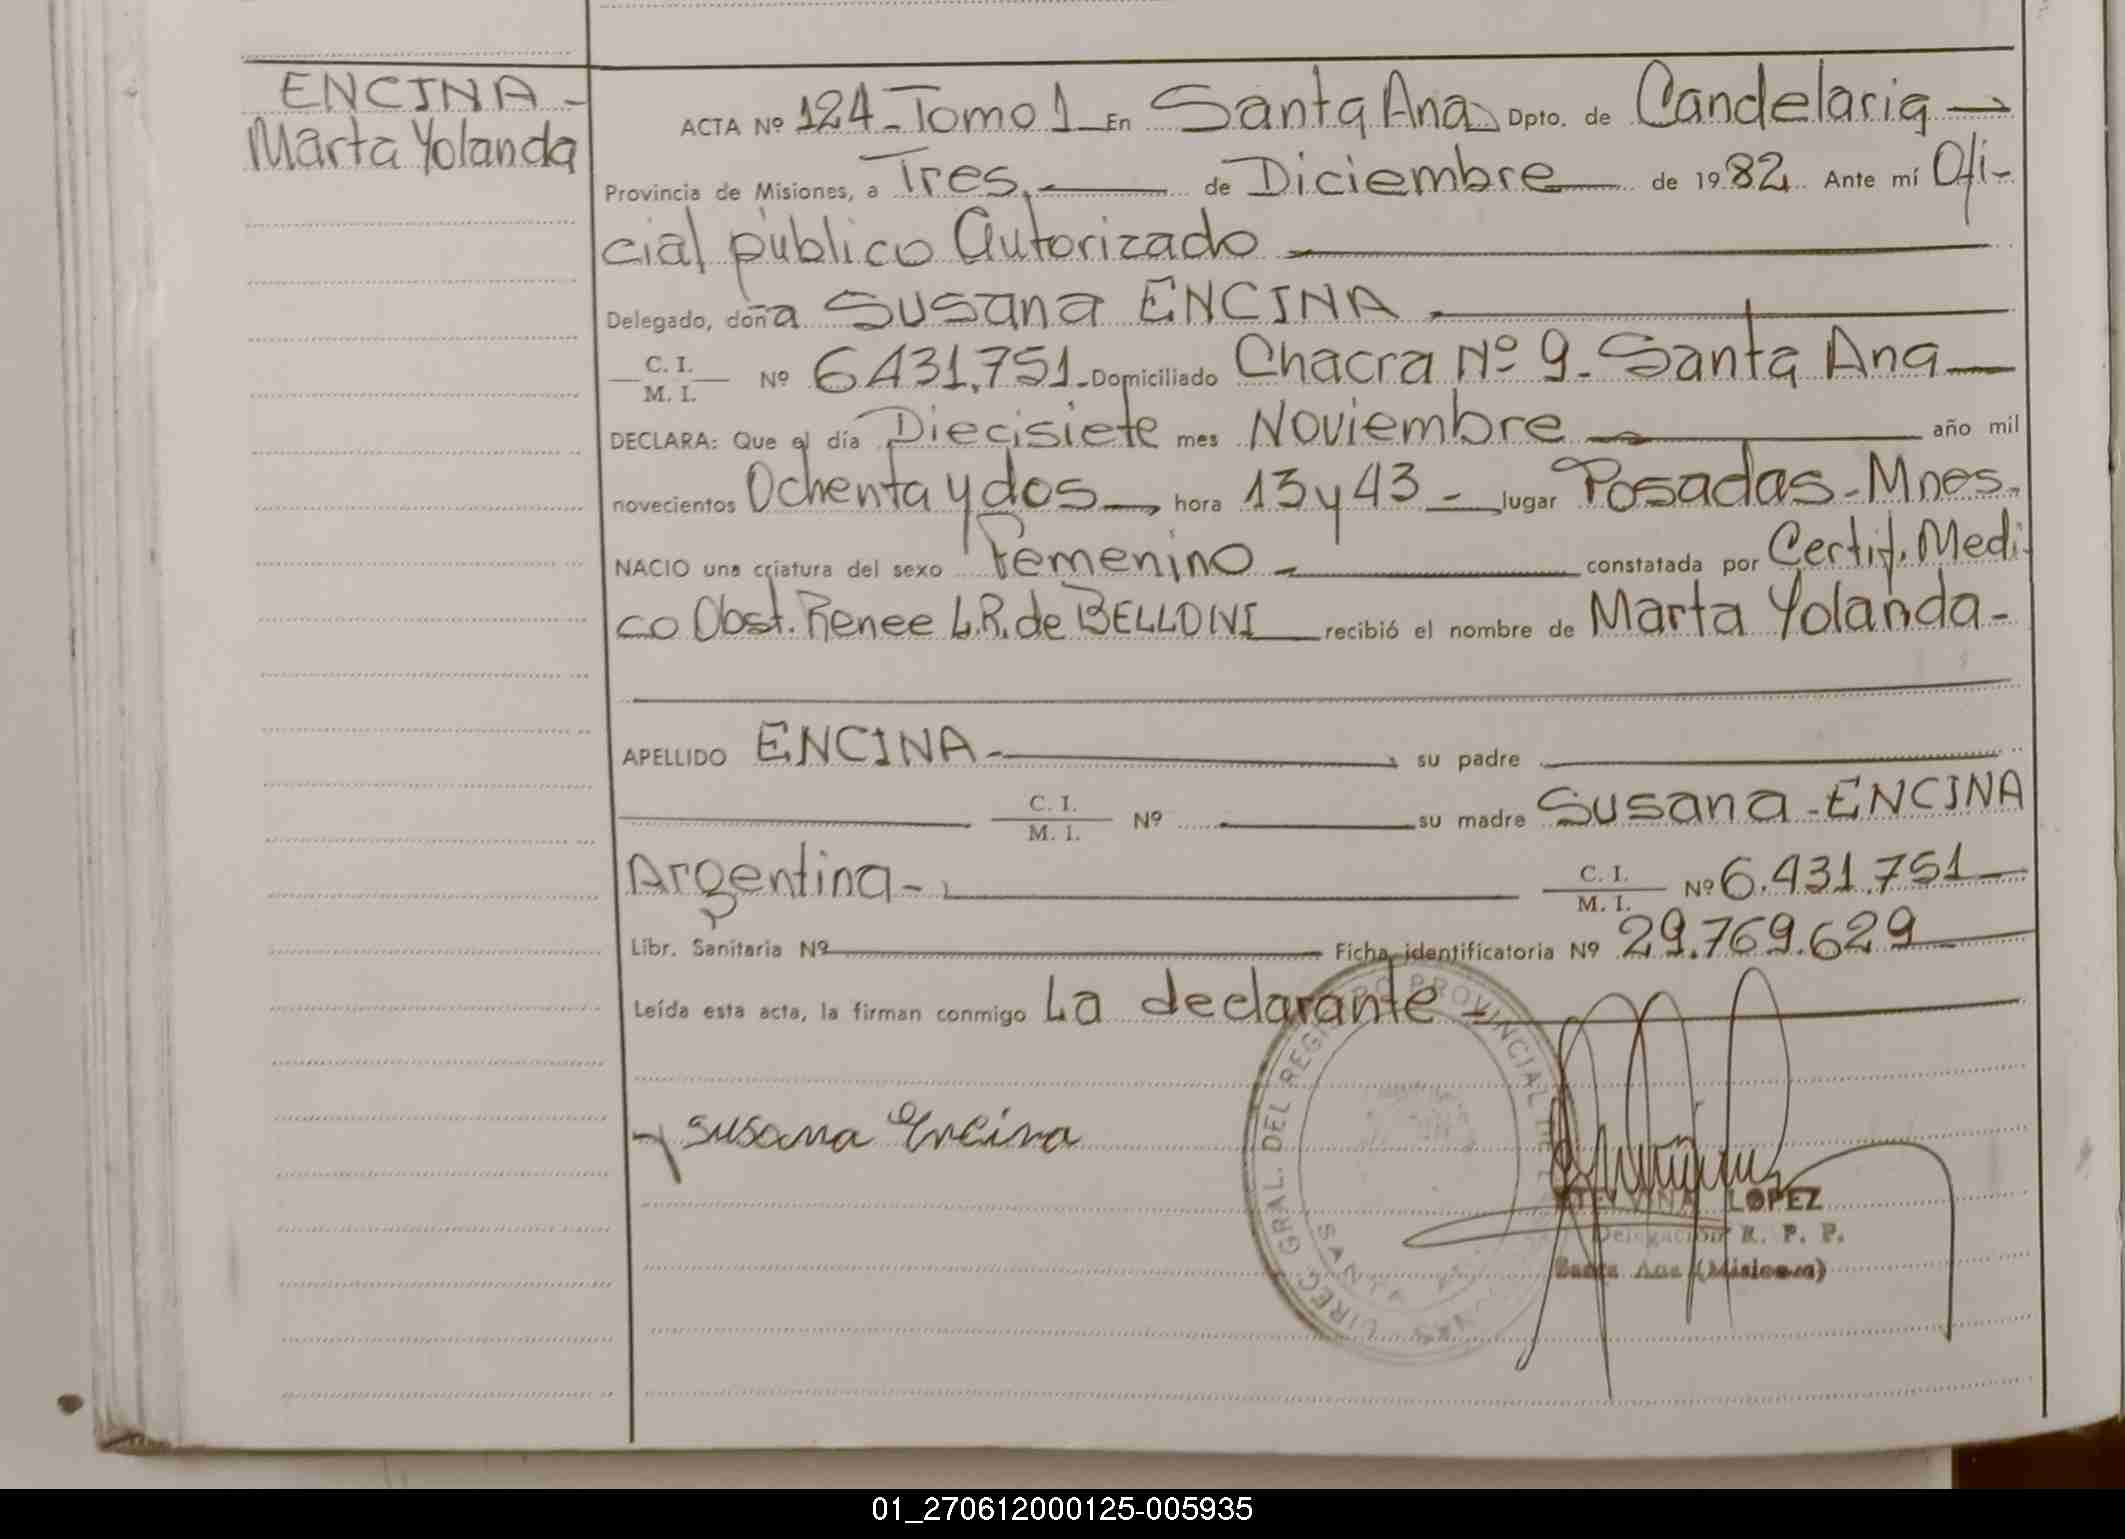 ENCINA -
Marta Yolanda
ACTA Nº 124 - Tomo 1 En Santa Ana Dpto. de Candelaria
Provincia de Misiones, a Tres de Diciembre de 1982 Ante mí Ofi-
cial público Autorizado
Delegado, doña Susana ENCINA
C. I.
M. I. Nº 6431.751 - Domiciliado Chacra Nº 9 - Santa Ana
DECLARA: Que el día Diecisiete mes Noviembre año mil
novecientos Ochenta y dos hora 13 y 43 - lugar Posadas - Mnes.
NACIO una criatura del sexo Femenino constatada por Certif. Medi-
co Obst. Renee L.R. de BELLONI recibió el nombre de Marta Yolanda -
APELLIDO ENCINA - su padre
C. I.
M. I. Nº su madre Susana - ENCINA
Argentina - C. I.
M. I. Nº 6.431.751
Libr. Sanitaria Nº Ficha identificatoria Nº 29.769.629
Leída esta acta, la firman conmigo La declarante -
Susana Encina
DIREC. GRAL. DEL REGISTRO PROVINCIAL DE
SANTA
LOPEZ
Delegación R. P. P.
Santa Ana (Misiones)
01_270612000125-005935